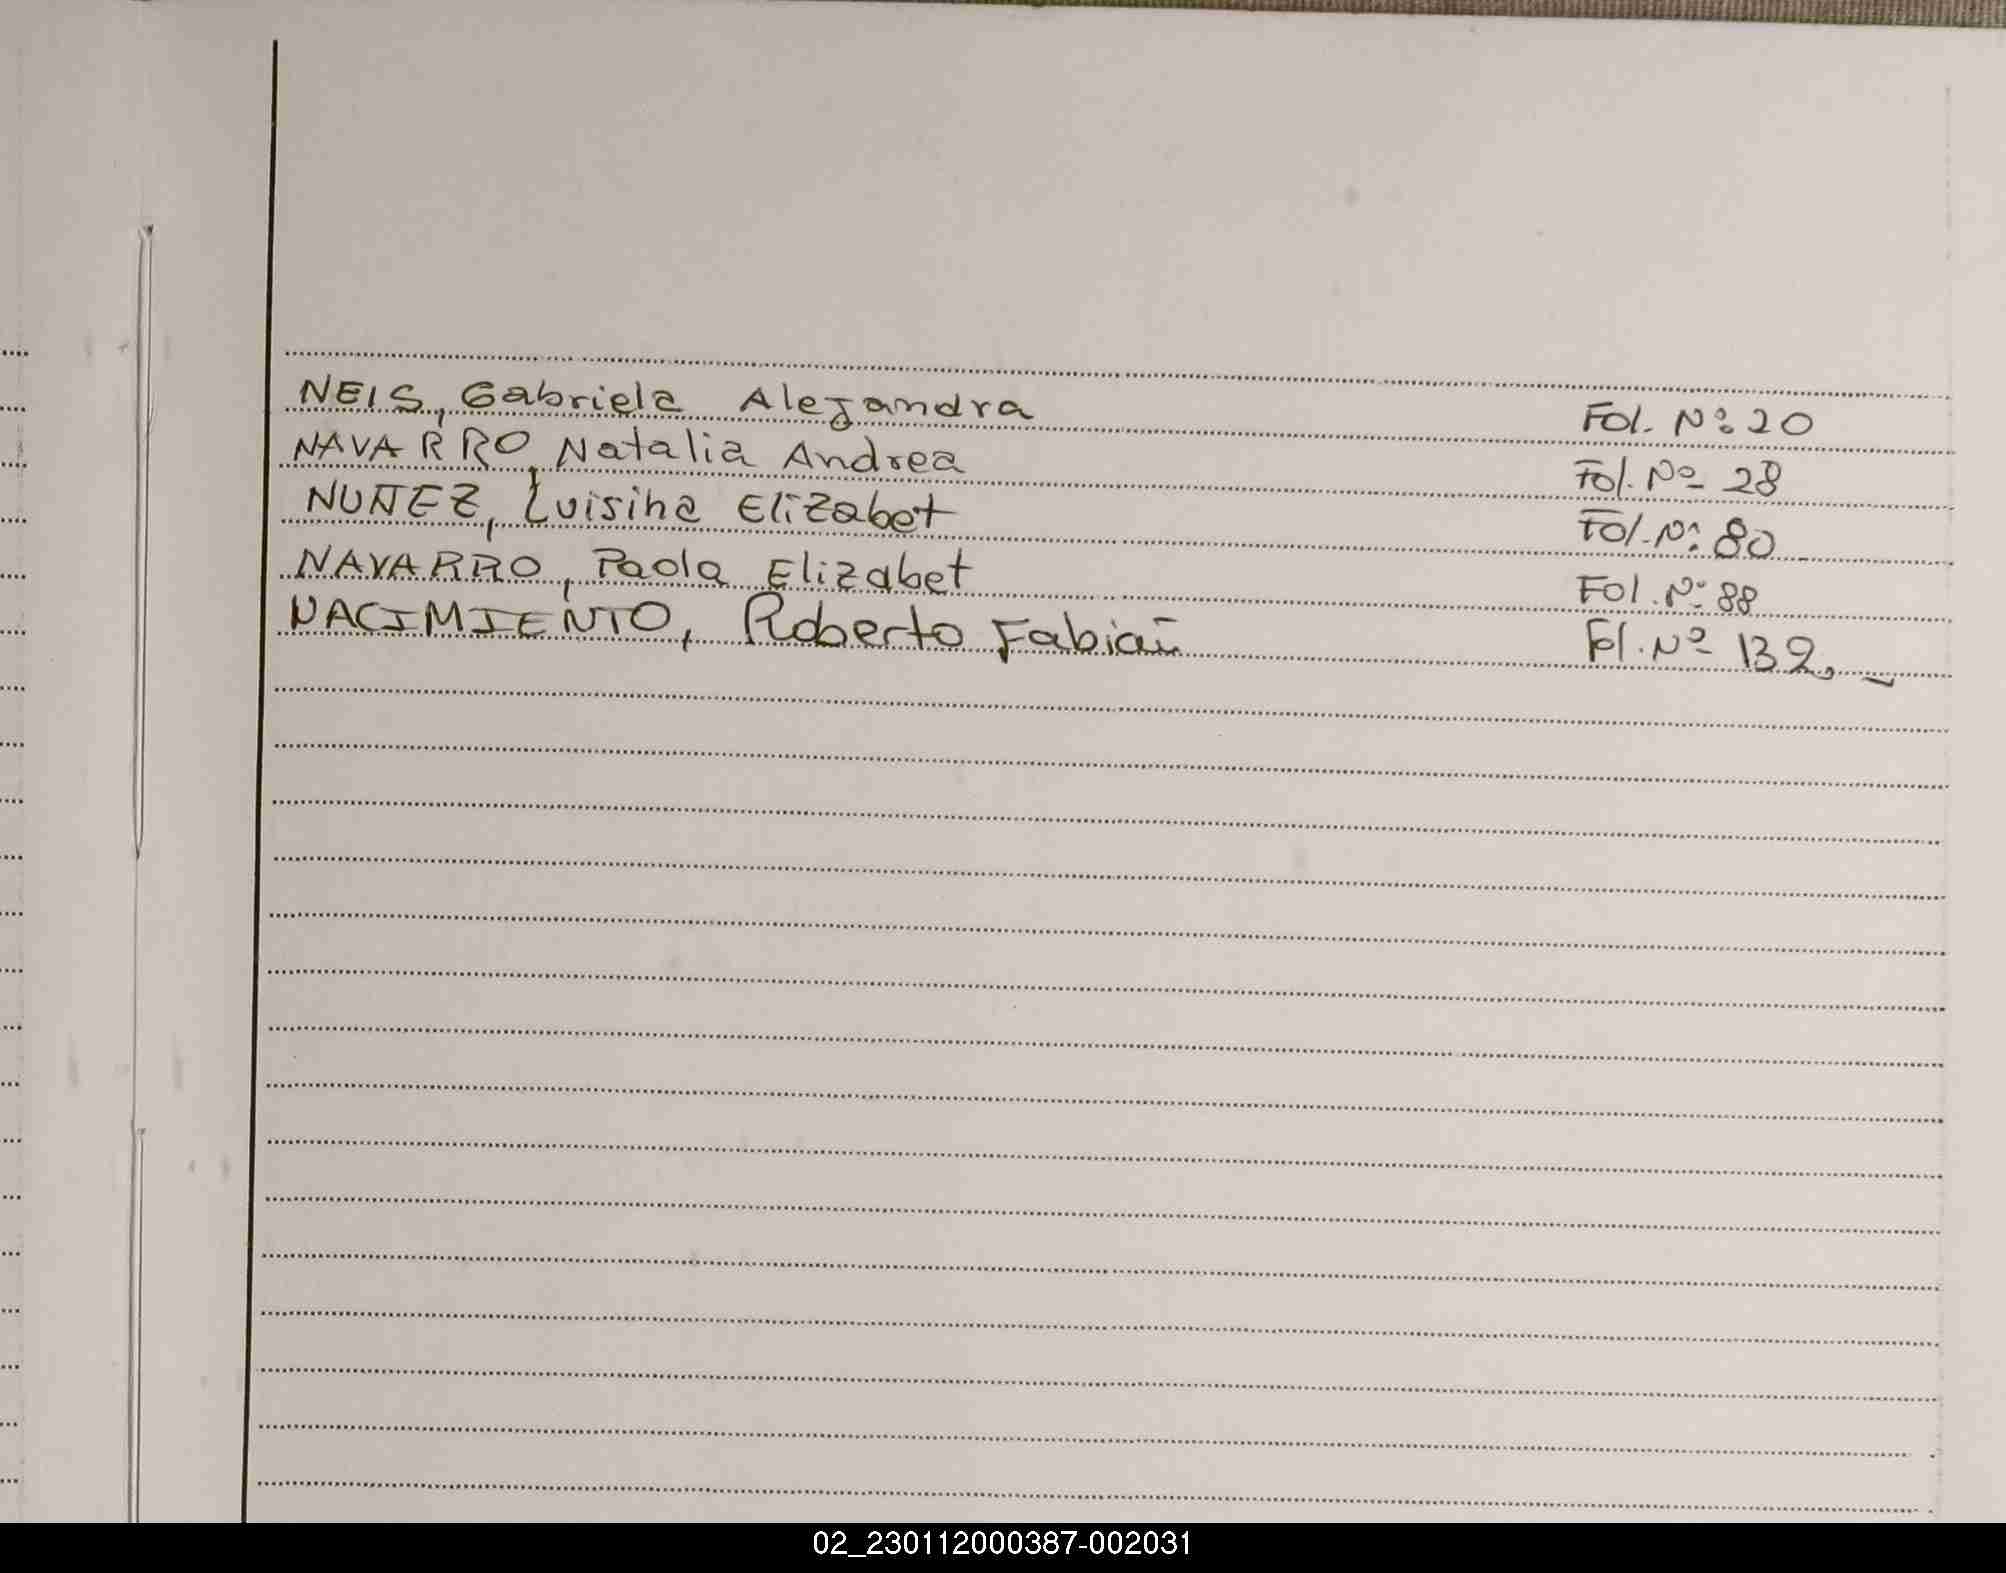 NEIS, Gabriela Alejandra Fol. Nº: 20
NAVARRO, Natalia Andrea Fol. Nº 28
NUÑEZ, Luisina Elizabet Fol. Nº: 80
NAVARRO, Paola Elizabet Fol. Nº: 88
NACIMIENTO, Roberto Fabián Fol. Nº 132._
02_230112000387-002031